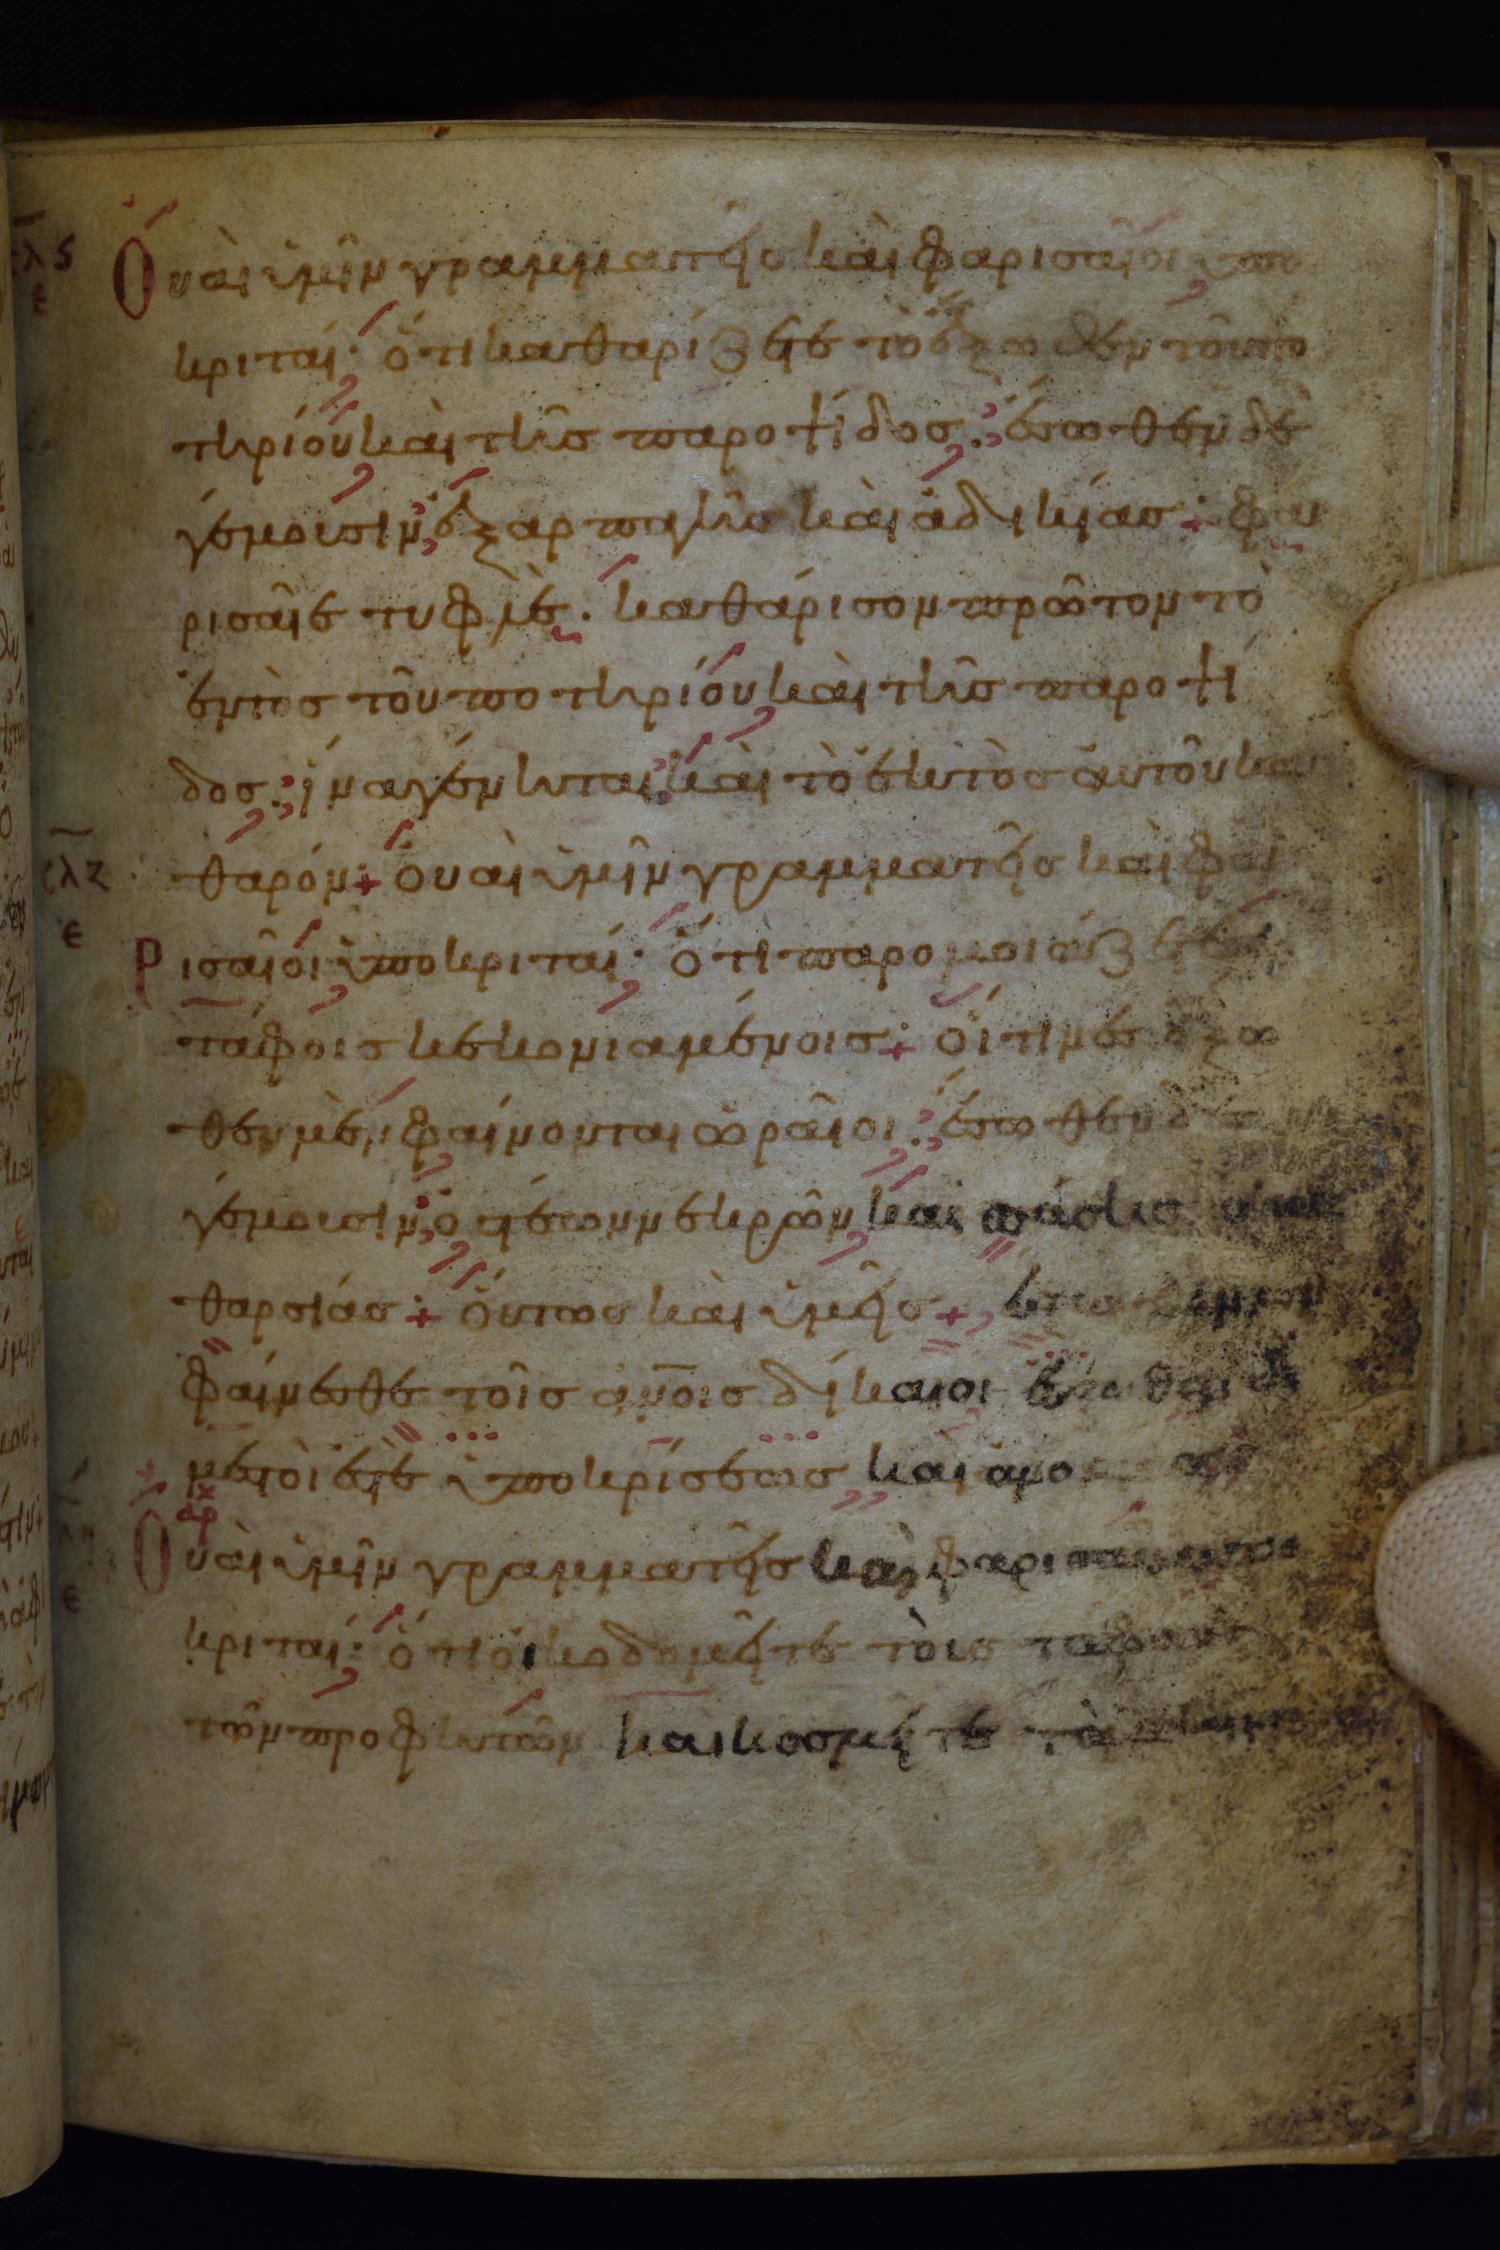 ϲλϛ
ε
Ουαὶ ὑμῖν γραμματεῖς καὶ φαρισαῖοι ὑπο
κριταί· ὅτι καθαρίζετε τὸ ἔξωθεν τοῦ πο
τηρίου καὶ τῆς παροψίδος· ἔσωθεν δὲ
γέμουσιν ἐξ ἁρπαγῆς καὶ ἀδικίας + φα
ρισαῖε τυφλέ· καθάρισον πρῶτον τὸ
ἐντὸς τοῦ ποτηρίου καὶ τῆς παροψί
δος· ἵνα γένηται καὶ τὸ ἐκτὸς αὐτοῦ κα
ϲλζ
ε
θαρόν + Οὐαὶ ὑμῖν γραμματεῖς καὶ φα
Ρισαῖοι ὑποκριταί· ὅτι παρομοιάζετε
τάφοις κεκονιαμένοις + οἵτινες ἔξω
θεν μὲν φαίνονται ὡραῖοι· ἔσωθεν δὲ
γέμουσιν ὀστέων νεκρῶν καὶ πάσης
θαρσίας + οὕτως καὶ ὑμεῖς + ἔξωθεν μὲν
φαίνεσθε τοῖς ἀν̅οις δίκαιοι ἔσωθεν δὲ
μεστοί ἐστε ὑποκρίσεως καὶ ἀνο
αρχ
ε
Ουαὶ ὑμῖν γραμματεῖς καὶ φαρισαῖοι ὑπο
κριταί· ὅτι οἰκοδομεῖτε τοὶς τάφους
τῶν προφητῶν καὶ κοσμεῖτε τὰ